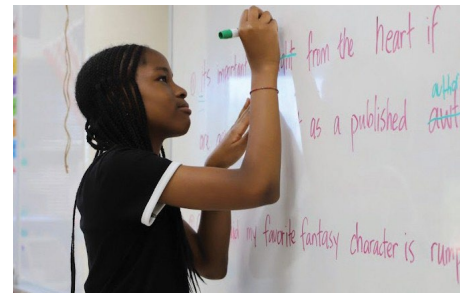 is important from the heart if
author
as a published
my favorite fantasy character is rump